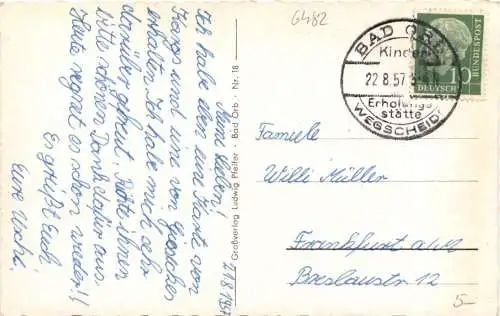 6482
Meine Lieben!
Ich habe den eure Karte von
Kargs und eine von Groschs
erhalten. Ich habe mich sehr
darüber gefreut. Richte ihnen
bitte schönen Dank dafür aus.
Heute regnet es schon wieder!!
Es grüßt Euch
Eure Uschi.
21.8.1957
Großverlag Ludwig Pfeifer - Bad Orb - Nr. 18
BAD ORB
Kinder
22.8.57
Erholungs
stätte
WEGSCHEIDE
DEUTSCHE
BUNDESPOST
10
Familie
Willi Müller
Frankfurt a/M
Breslaustr. 12
5-